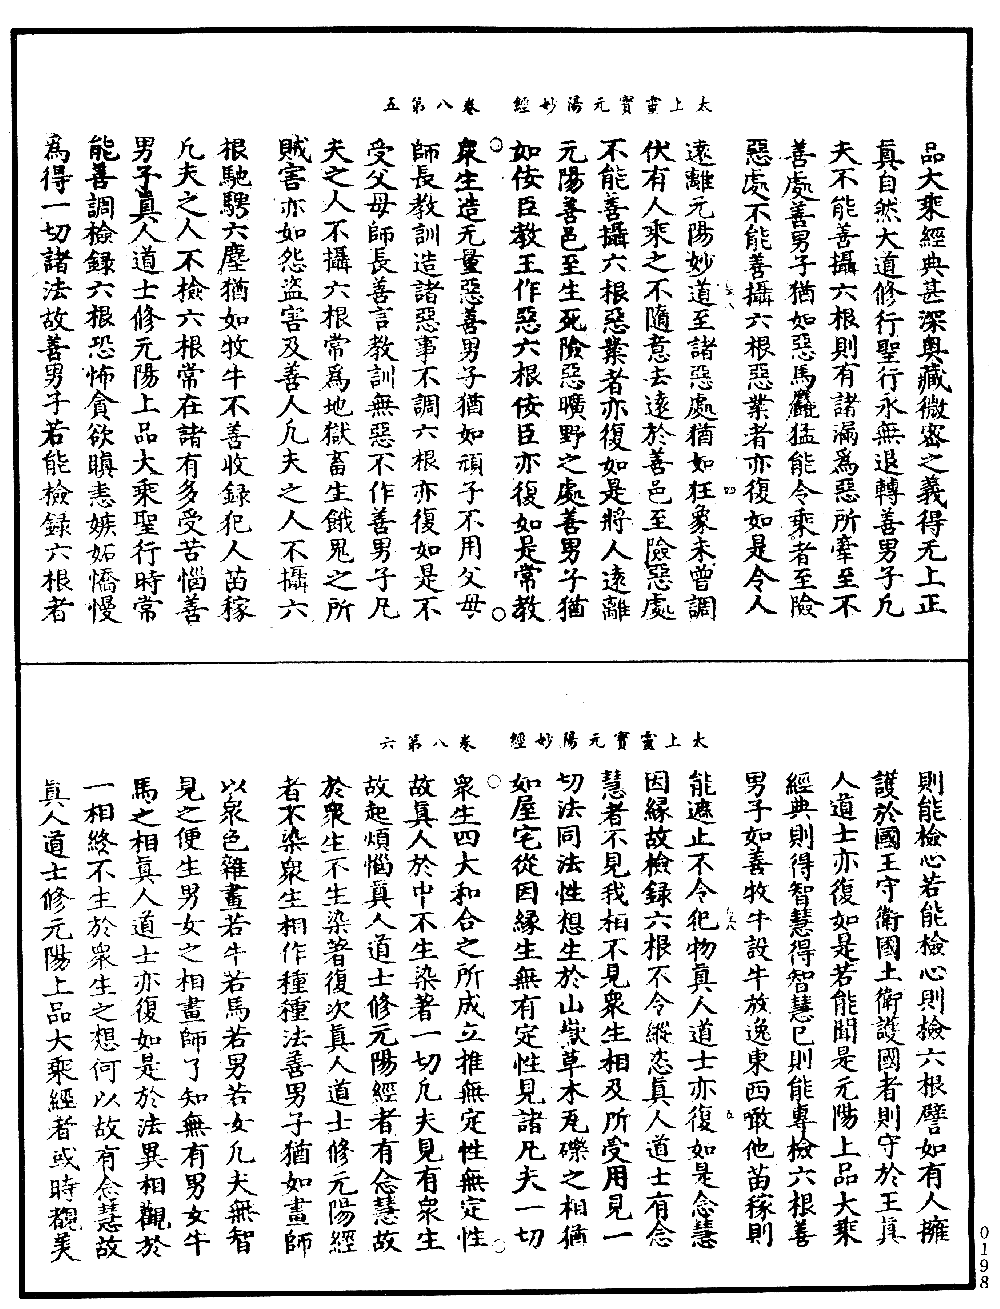 太上靈寶元陽妙經　卷八第五
品大乘經典甚深奧藏微密之義得无上正
真自然大道修行聖行永無退轉善男子凡
夫不能善攝六根則有諸漏為惡所牽至不
善處善男子猶如惡馬麤猛能令乘者至險
惡處不能善攝六根惡業者亦復如是令人
遠離元陽妙道至諸惡處猶如狂象未曾調
伏有人乘之不隨意去遠於善邑至險惡處
不能善攝六根惡業者亦復如是將人遠離
元陽善邑至生死險惡曠野之處善男子猶
如佞臣教王作惡六根佞臣亦復如是常教
眾生造无量惡善男子猶如頑子不用父母
師長教訓造諸惡事不調六根亦復如是不
受父母師長善言教訓無惡不作善男子凡
夫之人不攝六根常為地獄畜生餓鬼之所
賊害亦如怨盜害及善人凡夫之人不攝六
根馳騁六塵猶如牧牛不善收錄犯人苗稼
凡夫之人不檢六根常在諸有多受苦惱善
男子真人道士修元陽上品大乘聖行時常
能善調檢錄六根恐怖貪欲瞋恚嫉妬憍慢
為得一切諸法故善男子若能檢錄六根者
太上靈寶元陽妙經　卷八第六
則能檢心若能檢心則檢六根譬如有人擁
護於國王守衛國土衛護國者則守於王真
人道士亦復如是若能聞是元陽上品大乘
經典則得智慧得智慧已則能專檢六根善
男子如善牧牛設牛放逸東西噉他苗稼則
能遮止不令犯物真人道士亦復如是念慧
因緣故檢錄六根不令縱恣真人道士有念
慧者不見我相不見眾生相及所受用見一
切法同法性想生於山嶽草木瓦礫之相猶
如屋宅從因緣生無有定性見諸凡夫一切
眾生四大和合之所成立推無定性無定性
故真人於中不生染著一切凡夫見有眾生
故起煩惱真人道士修元陽經者有念慧故
於眾生不生染著復次真人道士修元陽經
者不染眾生相作種種法善男子猶如畫師
以眾色雜畫若牛若馬若男若女凡夫無智
見之便生男女之相畫師了知無有男女牛
馬之相真人道士亦復如是於法異相觀於
一相終不生於眾生之想何以故有念慧故
真人道士修元陽上品大乘經者或時覩美
0198